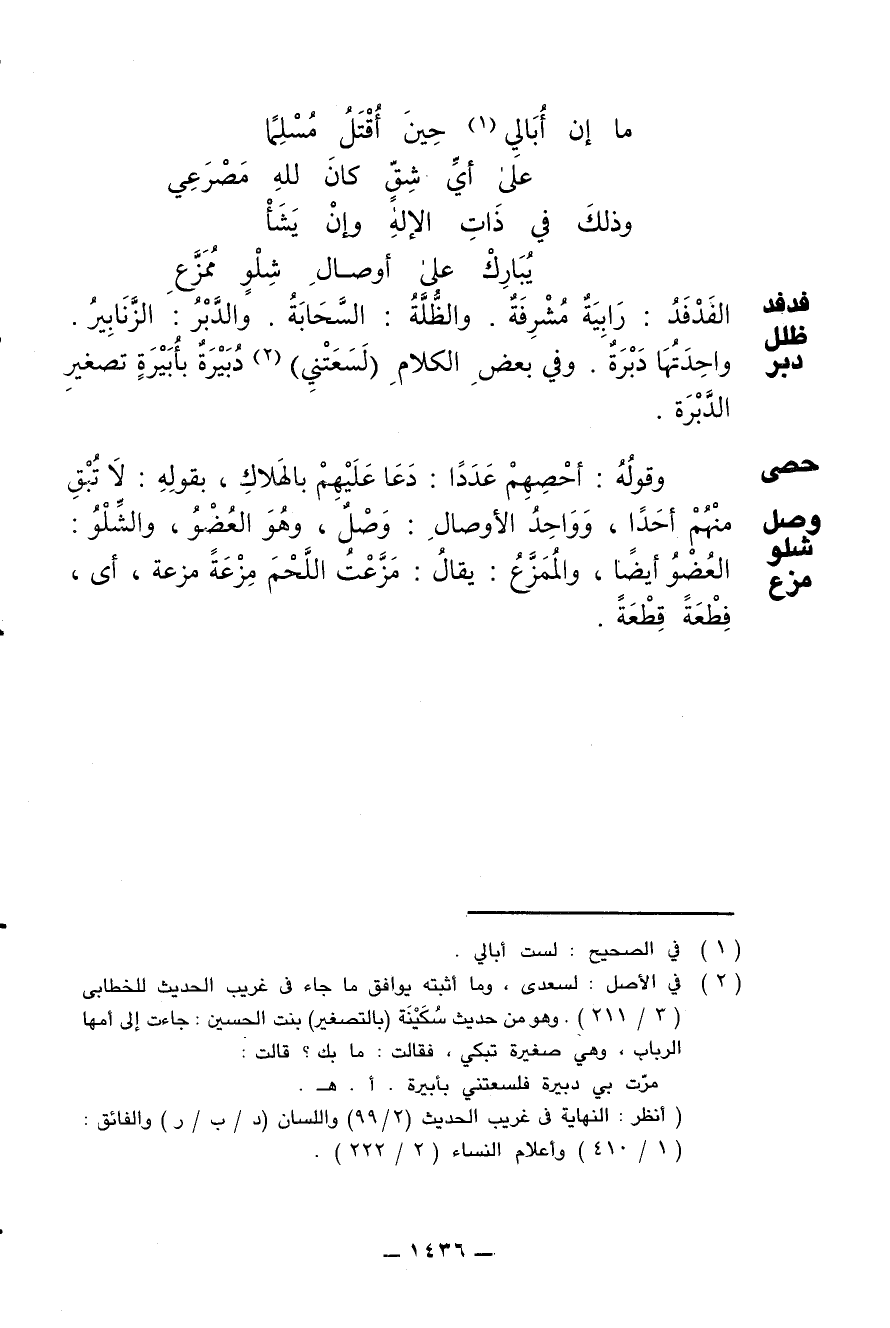 ما إن أُبَالِي (١) حِينَ أُقْتَلُ مُسْلِمًا
علىٰ أيِّ شِقٍّ كانَ للهِ مَصْرَعِي
وذلكَ في ذَاتِ الإلهِ وإنْ يَشَأْ
يُبَارِكْ علىٰ أوصـالِ شِلْوٍ مُمَزَّعِ
فدفد الفَدْفَدُ : رَابِيَةٌ مُشْرِفَةٌ . والظُّلَّةُ : السَّحَابَةُ . والدَّبْرُ : الزَّنَابِيرُ .
ظلل
دبر واحِدَتُهَا دَبْرَةٌ . وفي بعضِ الكلامِ (لَسَعَتْنِي) (٢) دُبَيْرَةٌ بأُبَيْرَةٍ تصغيرِ
الدَّبْرَة .
حصى وقولُهُ : أحْصِهِمْ عَدَدًا : دَعَا عَلَيْهِمْ بالهَلاكِ ، بقولِهِ : لَا تُبْقِ
وصل منْهُمْ أحَدًا ، وَوَاحِدُ الأوصالِ : وَصْلٌ ، وهُوَ العُضْوُ ، والشِّلْوُ :
شلو
مزع العُضْوُ أيضًا ، والمُمَزَّعُ : يقالُ : مَزَّعْتُ اللَّحْمَ مِزْعَةً مزعة ، أى ،
قِطْعَةً قِطْعَةً .
( ١ ) في الصحيح : لست أبالي .
( ٢ ) في الأصل : لسعدى ، وما أثبته يوافق ما جاء فى غريب الحديث للخطابى
( ٣ / ٢١١ ) . وهو من حديث سُكَيْنَة (بالتصغير) بنت الحسين : جاءت إلى أمها
الرباب ، وهي صغيرة تبكي ، فقالت : ما بك ؟ قالت :
مرّت بي دبيرة فلسعتني بأبيرة . أ . هـ .
( أنظر : النهاية فى غريب الحديث (٢/٩٩) واللسان (د / ب / ر ) والفائق :
( ١ / ٤١٠ ) وأعلام النساء ( ٢ / ٢٢٢ ) .
ــ ١٤٣٦ ــ